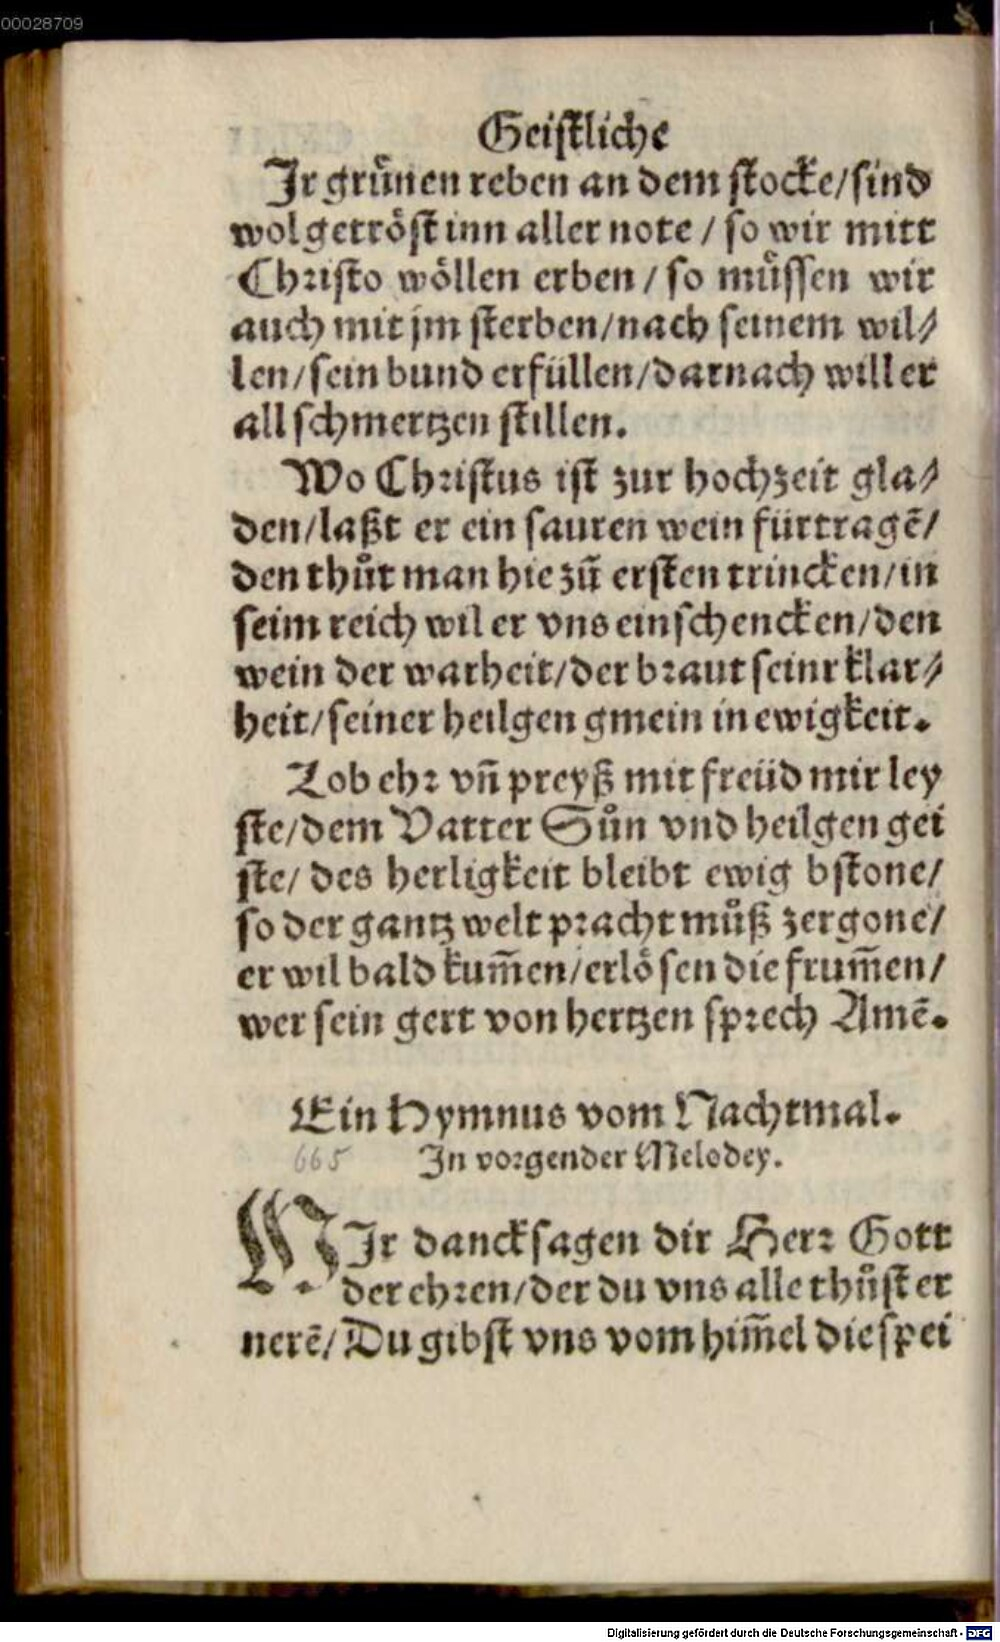 00028709
Geistliche
Jr grůnen reben an dem stocke/sind
wol getröst inn aller note / so wir mitt
Christo wöllen erben / so můssen wir
auch mit jm sterben/nach seinem wil⸗
len/sein bund erfüllen/darnach will er
all schmertzen stillen.
Wo Christus ist zur hochzeit gla⸗
den/laßt er ein sauren wein fürtragē/
den thůt man hie zů ersten trincken/in
seim reich wil er vns einschencken/den
wein der warheit/der braut seinr klar⸗
heit/seiner heilgen gmein in ewigkeit.
Lob ehr vñ preyß mit freüd mir ley
ste/dem Vatter Sůn vnd heilgen gei
ste/ des herligkeit bleibt ewig bstone/
so der gantz welt pracht můß zergone/
er wil bald kum̄en/erlösen die frum̄en/
wer sein gert von hertzen sprech Amē.
Ein Hymnus vom Nachtmal.
665 In vorgender Melodey.
WIr dancksagen dir Herr Gott
der ehren/der du vns alle thůst er
nerē/Du gibst vns vom him̄el die spei
Digitalisierung gefördert durch die Deutsche Forschungsgemeinschaft - DFG